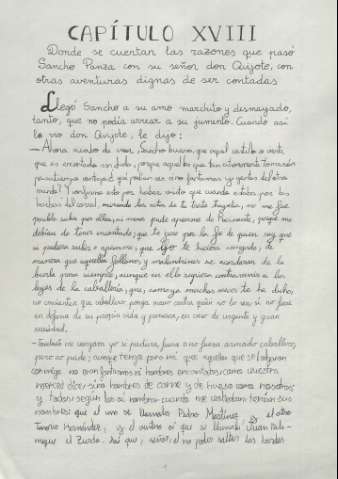 CAPÍTULO XVIII
Donde se cuentan las razones que pasó
Sancho Panza con su señor don Quijote, con
otras aventuras dignas de ser contadas
Llegó Sancho a su amo marchito y desmayado,
tanto, que no podía arrear a su jumento. Cuando así
lo vio don Quijote, le dijo:
- Ahora acabo de creer, Sancho bueno, que aquel castillo o venta
que es encantado sin duda, porque aquellos que tan atrozmente tomaron
pasatiempo contigo ¿qué podían ser sino fantasmas y gentes del otro
mundo? Y confirmo esto por haber visto que cuando estaba por las
bardas del corral, mirando los actos de tu triste tragedia, no me fue
posible subir por ellas, ni menos pude apearme de Rocinante, porque me
debían de tener encantado; que te juro por la fe de quien soy que
si pudiera subir o apearme, que yo te hiciera vengado, de
manera que aquellos follones y malandrines se acordaran de la
burla para siempre, aunque en ello supiera contravenir a las
leyes de la caballería, que, como ya muchas veces te he dicho,
no consienten que caballero ponga mano contra quien no lo sea, si no fuese
en defensa de su propia vida y persona, en caso de urgente y gran
necesidad.
- También me vengara yo si pudiera, fuera o no fuera armado caballero,
pero no pude; aunque tengo para mí que aquellos que se holgaron
conmigo no eran fantasmas ni hombres encantados, como vuestra
merced dice, sino hombres de carne y de hueso como nosotros;
y todos, según los oí nombrar cuando me volteaban, tenían sus
nombres: que el uno se llamaba Pedro Martínez, y el otro
Tenorio Hernández, y el ventero oí que se llamaba Juan Palo-
meque el Zurdo. Así que, señor, el no poder saltar las bardas